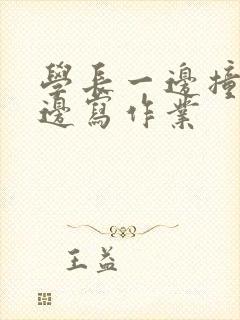 學長一邊撞
邊寫作業
王益